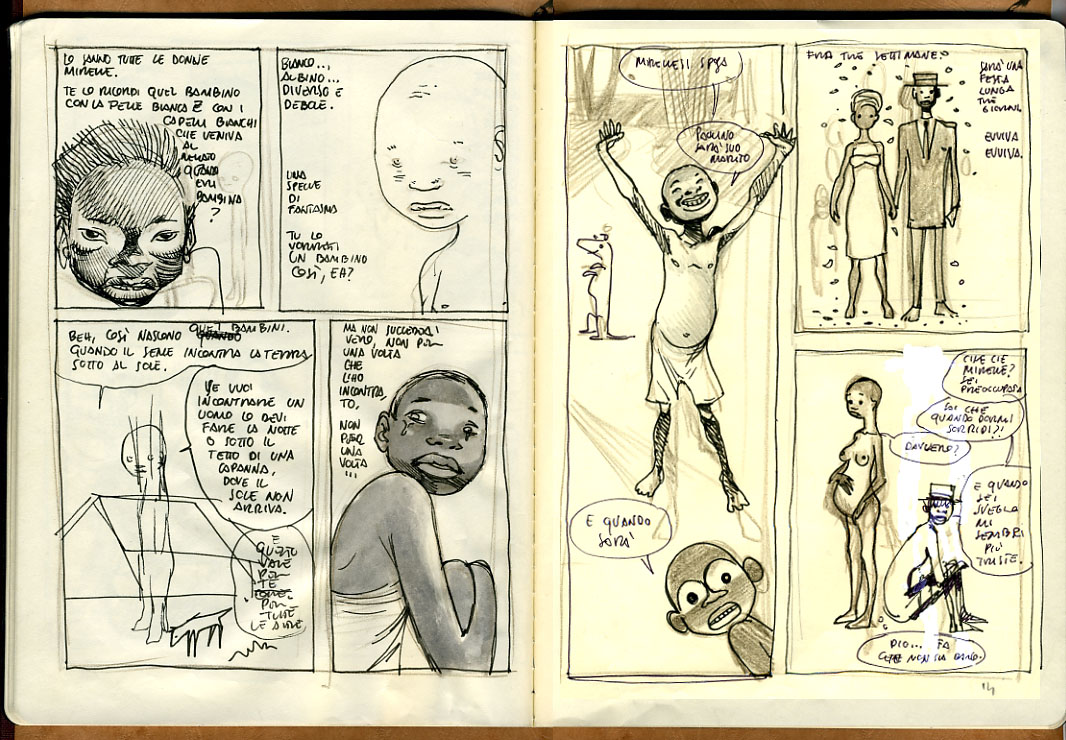 LO SANNO TUTTE LE DONNE
MIRELLE.
TE LO RICORDI QUEL BAMBINO
CON LA PELLE BIANCA E CON I
CAPELLI BIANCHI
CHE VENIVA
AL
MERCATO
QUANDO
ERI
BAMBINA
?
BIANCO...,
ALBINO...
DIVERSO E
DEBOLE.
UNA
SPECIE
DI
FANTASMA
TU LO
VORRESTI
UN BAMBINO
COSÌ, EH?
BEH, COSÌ NASCONO QUEI BAMBINI.
QUANDO IL SEME INCONTRA LA TERRA
SOTTO AL SOLE.
SE VUOI
INCONTRARE UN
UOMO LO DEVI
FARE LA NOTTE
O SOTTO IL
TETTO DI UNA
CAPANNA,
DOVE IL
SOLE NON
ARRIVA.
E
QUESTO
VALE
PER
TE
PER
TUTTE
LE
MA NON SUCCEDERÀ
VERO, NON PER
UNA VOLTA
CHE
L'HO
INCONTRA
TO,
NON
PER
UNA
VOLTA
...
MIRELLE SI SPOSA
PAULINO
SARÀ SUO
MARITO
E QUANDO
SARÀ
FRA TRE SETTIMANE?
SARÀ UNA
FESTA
LUNGA
TRE
GIORNI.
EVVIVA
EVVIVA.
CHE C'È
MIRELLE?
SEI
PREOCCUPATA
SAI CHE
QUANDO DORMI
SORRIDI?!
DAVVERO?
E QUANDO
SEI
SVEGLIA
MI
SEMBRI
PIÙ
TRISTE.
DIO... FA
CHE NON SIA
14